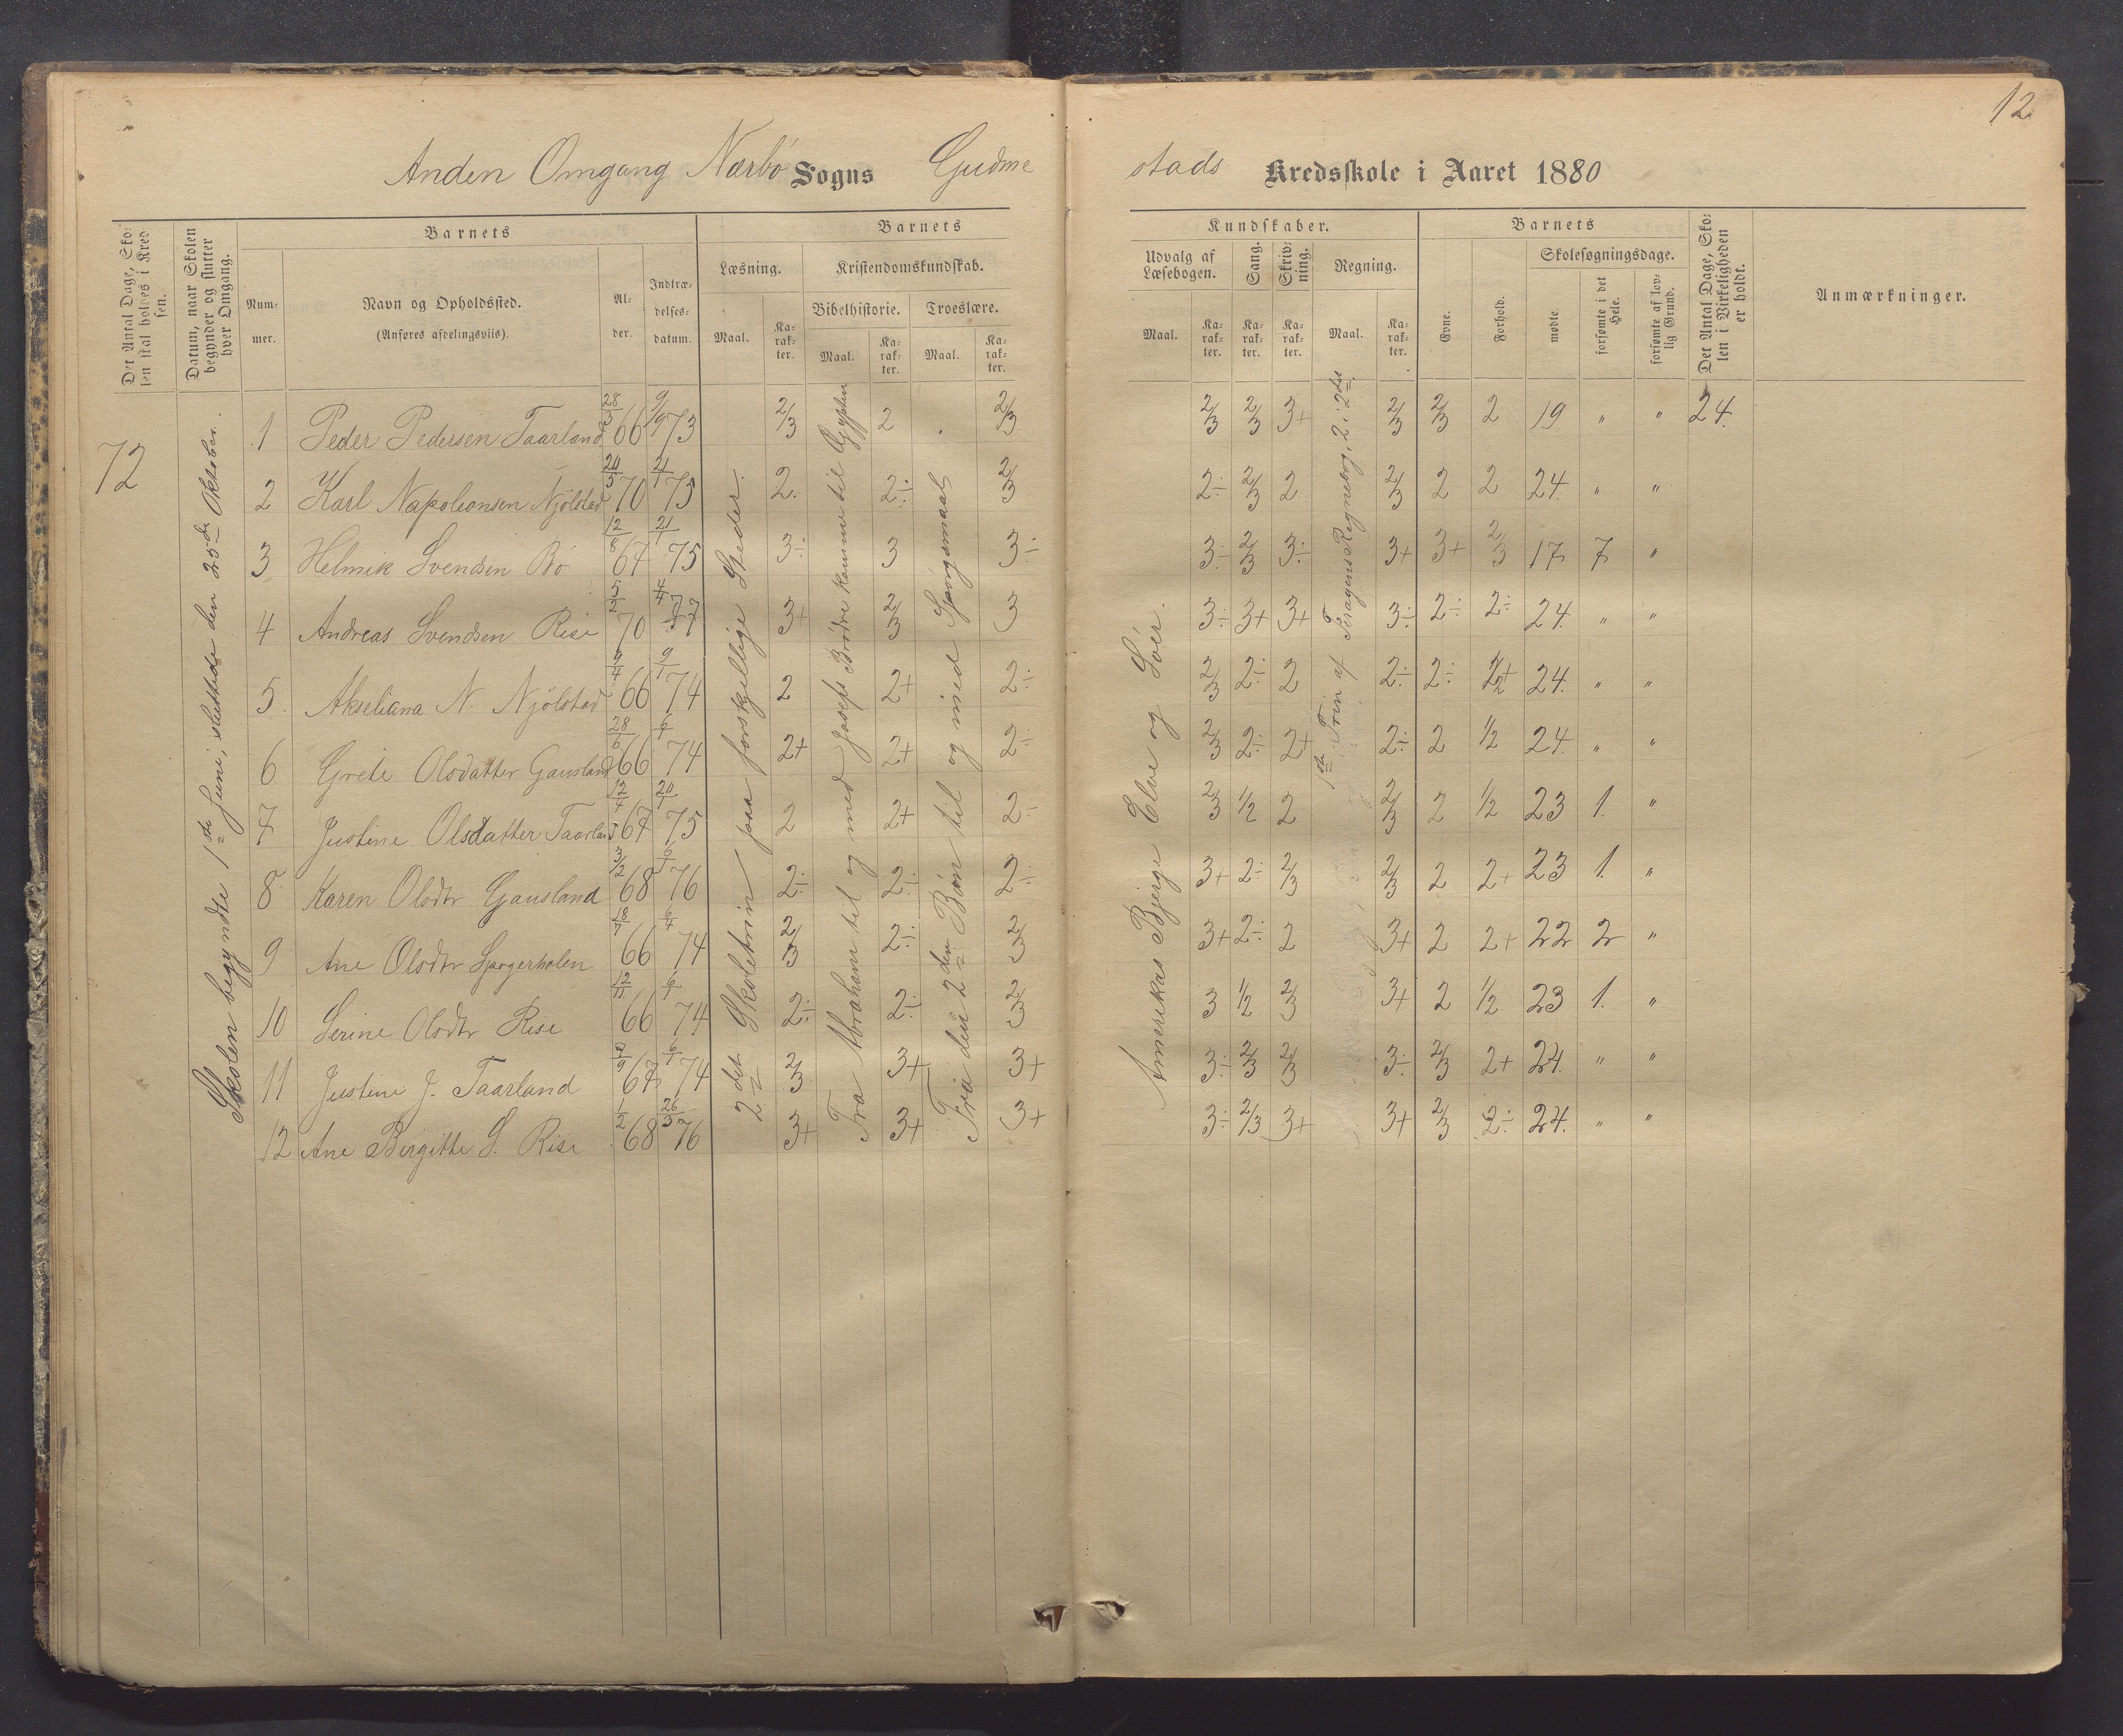 12
Anden Omgang Nærbø Sogns Gudme
stads Kredsskole i Aaret 1880
Det Antal Dage, Skolen skal holdes i Kredsen.
Datum, naar Skolen begynder og slutter hver Omgang.
Barnets
Nummer.
Navn og Opholdssted.
(Anføres afdelingsviis).
Alder.
Indtrædelsesdatum.
Barnets
Læsning.
Kristendomskundskab.
Bibelhistorie. Troeslære.
Maal. Karakter. Maal. Karakter. Maal. Karakter.
Kundskaber.
Udvalg af Læsebogen. Sang. Skrivning. Regning.
Maal. Karakter. Karakter. Karakter. Maal. Karakter.
Barnets
Evne. Forhold.
Skolesøgningsdage.
mødte. forsømte i det Hele. forsømte af lovlig Grund.
Det Antal Dage, Skolen i Virkeligheden er holdt.
Anmærkninger.
72
Skolen begyndte 1ste Juni; sluttede den 25de Oktober.
2det Skoletrin paa forskjellige Steder.
Fra Abraham til og med Josefs Brødre komme til Ægypten
Fra den 2den Bøn til og med Spørgsmaal
Amerikas Bjerge Elve og Søer.
1ste Trin af Regneborg, 2 i 2det
1 Peder Pedersen Taarland 28/3 66 9/9 73 2/3 2 . 2/3 2/3 2/3 3+ 2/3 2/3 2 19 " " 24.
2 Karl Napoleonsen Njölstad 20/5 70 21/1 75 2. 2÷ 2/3 2÷ 2/3 2 2/3 2 2 24. " "
3 Helmik Svendsen Bö 12/8 67 21/1 75 3÷ 3 3÷ 3÷ 2/3 3÷ 3+ 3+ 2/3 17 7 "
4 Andreas Svendsen Rise 5/2 70 4/4 77 3+ 2/3 3 3÷ 3+ 3+ 3÷ 2÷ 2÷ 24. " "
5. Akseliana N. Njölstad 66 9/1 74 2 2+ 2÷ 2/3 2÷ 2 2÷ 2÷ 24. " "
6 Grete Olsdatter Gausland 28/6 66 6/1 74 2+ 2+ 2÷ 2/3 2÷ 2+ 2÷ 2 1/2 24. " "
7 Justine Olsdatter Taarland 12/4 67 20/1 75 2 2+ 2÷ 2/3 1/2 2 2/3 2 1/2 23 1. "
8 Karen Olsdtr Gausland 3/2 68 6/1 76 2÷ 2÷ 2÷ 3+ 2÷ 2/3 2/3 2 2+ 23 1. "
9 Ane Olsdtr 18/7 66 6/4 74 2/3 2÷ 2/3 3+ 2÷ 2 3+ 2 2+ 22 2 "
10 Serine Olsdtr Rise 12/11 66 6/1 74 2÷ 2÷ 2/3 3 1/2 2/3 3+ 2 1/2 23 1. "
11 Justine J. Taarland 67 6/1 74 2/3 3+ 3+ 3÷ 2/3 2/3 3÷ 2/3 2+ 24. " "
12 Ane Birgitte S. Rise 1/2 68 26/3 76 3+ 3+ 3+ 3÷ 2/3 3+ 3+ 2/3 2÷ 24. " "